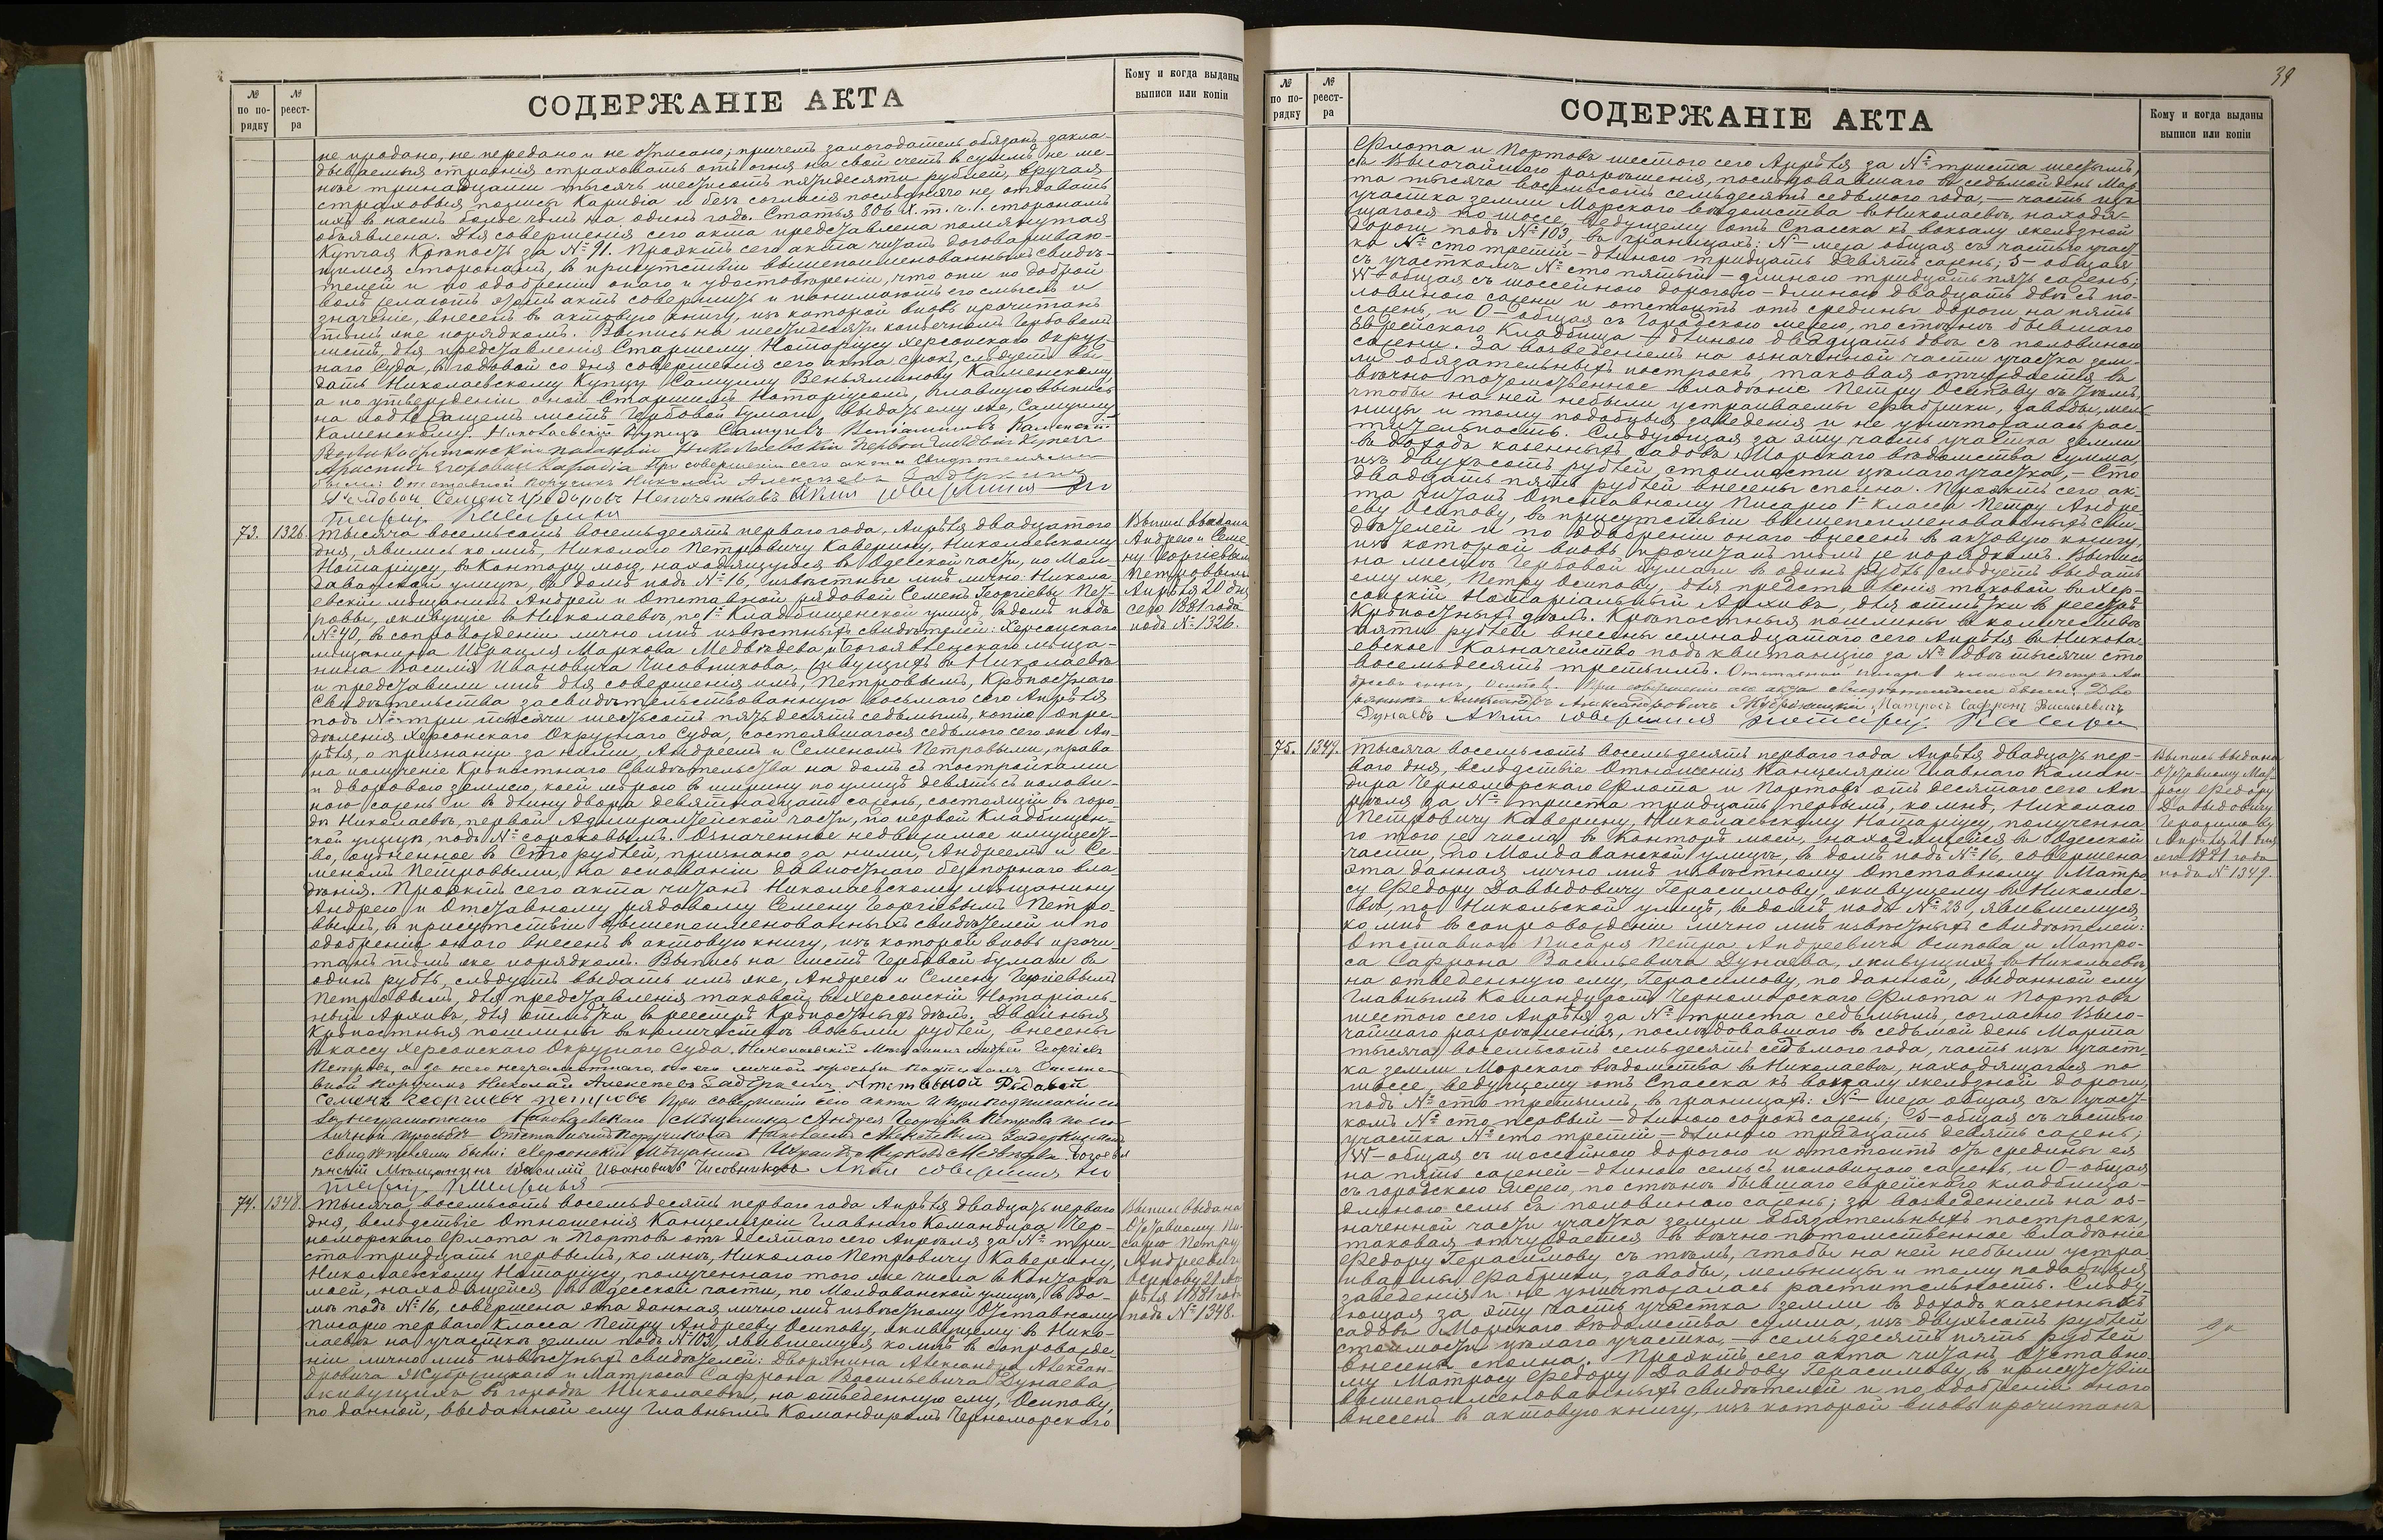 № по по-рядку
№ реест-ра
СОДЕРЖАНІЕ АКТА
Кому и когда выданы выписи или копіи
не продано, не передано и не описано; причемъ залогодатель обязанъ закла-
дываемыя строенія страховать отъ огня на свой счетъ въ суммѣ не ме-
нѣе тринадцати тысячъ шестисотъ пятидесяти рублей, вручая
страховыя полисы Каридіа и безъ согласія послѣдняго не отдавать
ихъ въ наемъ болѣе чѣмъ на одинъ годъ. Статья 806 X. т. ч. 1. сторонамъ
объявлена. Для совершенія сего акта представлена помянутая
Купчая Крѣпость за № 91. Проэктъ сего акта читанъ договариваю-
щимся сторонамъ, въ присутствіи вышепоименованныхъ свидѣ-
телей и по одобреніи онаго и удостовѣреніи, что они по доброй
волѣ желаютъ этотъ актъ совершить и понимаютъ его смыслъ и
значеніе, внесенъ въ актовую книгу, изъ которой вновь прочитанъ
тѣмъ же порядкомъ. Выпись на шестидесяти копѣечномъ Гербовомъ
листѣ, для представленія Старшему Нотаріусу Херсонскаго Окруж-
наго Суда, въ годовой со дня совершенія сего акта срокъ, слѣдуетъ вы-
дать Николаевскому Купцу Самуилу Веньяминову Каменскому
а по утвержденіи оной Старшимъ Нотаріусомъ, главную выпись
на подлежащемъ листѣ Гербовой бумаги, выдать ему же, Самуилу
Каменскому. Николаевскій Купецъ Самуилъ Веніаминовъ Каменскій
Николаевскій Первой Гильдіи Купецъ
Егоровичъ Карадіа При совершеніи сего акта свидѣтелями
были: Отставной Поручикъ Николай Алексѣевъ Задеркинъ
Семенъ Федоровъ Непочетковъ Актъ совершилъ Но
таріусъ Каверинъ
73. 1326. Тысяча восемьсотъ восемьдесятъ перваго года, Апрѣля двадцатаго
дня, явились ко мнѣ, Николаю Петровичу Каверину, Николаевскому
Нотаріусу, въ Контору мою, находящуюся въ Одесской части, по Мол-
даванской улицѣ, въ домѣ подъ № 16, извѣстные мнѣ лично: Никола-
евскій мѣщанинъ Андрей и Отставной рядовой Семенъ Георгіевы Пет-
ровы, живущіе въ Николаевѣ, по 1й Кладбищенской улицѣ, въ домѣ подъ
№ 40, въ сопровожденіи лично мнѣ извѣстныхъ свидѣтелей: Херсонскаго
мѣщанина Израиля Маркова Медвѣдева и Богоявленскаго мѣща-
нина Василія Ивановича Чисовникова, живущихъ въ Николаевѣ
и представили мнѣ для совершенія имъ, Петровымъ, Крѣпостнаго
Свидѣтельства засвидѣтельствованную восьмаго сего Апрѣля
подъ № три тысячи шестьсотъ пятьдесятъ седьмымъ, копію опре-
дѣленія Херсонскаго Окружнаго Суда, состоявшагося седьмого сего же Ап-
рѣля, о признаніи за ними, Андреемъ и Семеномъ Петровыми, права
на полученіе Крѣпостнаго Свидѣтельства на домъ съ постройками
и дворовою землею, коей мѣрою въ ширину по улицѣ девять съ полови-
ною сажень и въ длину двора девятнадцать сажень, состоящій въ горо-
дѣ Николаевѣ, первой Адмиралтейской части, по первой Кладбищен-
ской улицѣ, подъ № сороковымъ. Означенное недвижимое имущест-
во, оцѣненное въ Сто рублей, признано за ними, Андреемъ и Се-
меномъ Петровыми, на основаніи давностнаго безпорнаго вла-
дѣнія. Проэктъ сего акта читанъ Николаевскому мѣщанину
Андрею и Отставному рядовому Семену Георгіевымъ Петро-
вымъ, въ присутствіи вышепоименованныхъ свидѣтелей и по
одобреніи онаго внесенъ въ актовую книгу, изъ которой вновь прочи-
танъ тѣмъ же порядкомъ. Выпись на листѣ Гербовой бумаги въ
одинъ рубль, слѣдуетъ выдать имъ же, Андрею и Семену Георгіевымъ
Петровымъ, для представленія таковой въ Херсонскій Нотаріаль-
ный Архивъ, для отмѣтки въ реестрѣ Крѣпостныхъ дѣлъ. Двойныя
Крѣпостныя пошлины въ количествѣ восьми рублей, внесены
въ кассу Херсонскаго Окружнаго Суда. Николаевскій Мѣщанинъ Андрей Георгіевъ
Петровъ, а за него неграмотнаго, по его личной просьбѣ подписалъ Отста-
вной поручикъ Николай Алексѣевъ Задеркинъ, Атетавной Рядавой
Семенъ Георгиевъ Петровъ При совершеніи сего акта и при подписаніи
за неграмотнаго Николаевскаго мѣщанина Андрея Георгіева Петрова по его
личной просьбѣ Отставнымъ Поручикомъ Николаемъ Алексѣевымъ Задеркинымъ
свидѣтелями были: Херсонскій Мѣщанинъ Израиль Марковъ Медвѣдевъ Богоявле
нскій Мѣщанинъ Василій Ивановичъ Чисовниковъ Актъ совершилъ Но
таріусъ Каверинъ
Выпись выдана
Андрею и Семе-
ну Георгіевымъ
Петровымъ
Апрѣля 20 дня
сего 1881 года
подъ № 1326.
74. 1348. Тысяча восемьсотъ восемьдесятъ перваго года Апрѣля двадцать перваго
дня, вслѣдствіе Отношенія Канцеляріи Главнаго Командира Чер-
номорскаго Флота и Портовъ отъ десятаго сего Апрѣля за № три-
ста тридцать первымъ, ко мнѣ, Николаю Петровичу Каверину,
Николаевскому Нотаріусу, полученнаго того же числа въ Конторѣ
моей, находящейся въ Одесской части, по Молдаванской улицѣ, въ до-
мѣ подъ № 16, совершена эта данная лично мнѣ извѣстному Отставному
Писарю перваго класса Петру Андрееву Осипову, живущему въ Нико-
лаевѣ на участкѣ земли подъ № 103, явившемуся ко мнѣ въ сопровожде-
ніи лично мнѣ извѣстныхъ свидѣтелей: Дворянина Александра Алексан-
дровича Якубрицкаго и Матроса Сафрона Васильевича Дунаева,
живущимъ въ городѣ Николаевѣ, на отведенную ему, Осипову,
по данной, выданной ему Главнымъ Командиромъ Черноморскаго
Выпись выдана
Отставному Пи-
сарю Петру
Андреевичу
Осипову 21 Ап-
рѣля 1881 года
подъ № 1348.
39
№ по по-рядку
№ реест-ра
СОДЕРЖАНІЕ АКТА
Кому и когда выданы выписи или копіи
Флота и Портовъ шестого сего Апрѣля за № триста шестымъ,
съ Высочайшаго разрѣшенія, послѣдовавшаго въ седьмой день Мар-
та тысяча восемьсотъ семьдесятъ седьмого года, — часть изъ
участка земли Морскаго вѣдомства въ Николаевѣ, находя-
щагося по шоссе, ведущему отъ Спасска къ вокзалу желѣзной
дороги подъ № 103, въ границахъ: N — межа общая съ частью участ-
ка № сто третій — длиною тридцать девять сажень; S — общая
съ участкомъ № сто пятый — длиною тридцать пять сажень;
W — общая съ шоссейною дорогою — длиною двадцать двѣ съ по-
ловиною сажени и отстоитъ отъ средины дороги на пять
сажень, и O — общая съ Городскою межею, по стѣнѣ бывшаго
Еврейскаго Кладбища — длиною двадцать двѣ съ половиною
сажени. За возведеніемъ на означенной части участка зем-
ли обязательныхъ построекъ, таковая отчуждается въ
вѣчно потомственное владѣніе Петру Осипову съ тѣмъ,
чтобы на ней небыли устраиваемы фабрики, заводы, мель-
ницы и тому подобныя заведенія и не уничтожалась рас-
тительность. Слѣдующая за эту часть участка земли
въ доходъ казенныхъ садовъ Морскаго вѣдомства сумма,
изъ двухъсотъ рублей, стоимости цѣлаго участка, — Сто
двадцать пять рублей внесены сполна. Проэктъ сего ак-
та читанъ Отставному Писарю 1го класса Петру Андре-
еву Осипову, въ присутствіи вышепоименованныхъ сви-
дѣтелей и по одобреніи онаго внесенъ въ актовую книгу,
изъ которой вновь прочитанъ тѣмъ же порядкомъ. Выпись
на листѣ Гербовой бумаги въ одинъ рубль слѣдуетъ выдать
ему же, Петру Осипову, для представленія таковой въ Хер-
сонскій Нотаріальный Архивъ, для отмѣтки въ реестрѣ
Крѣпостныхъ дѣлъ. Крѣпостныя пошлины въ количествѣ
пяти рублей внесены семнадцатаго сего Апрѣля въ Никола-
евское Казначейство подъ квитанцію за № двѣ тысячи сто
восемьдесятъ третьимъ. Отставной писарь 1 класса Петръ Ан
дреевъ сынъ, Осиповъ. При совершеніи сего акта свидѣтелями были: Дво
рянинъ Александръ Александровичъ Якубрицкій, Матросъ Сафронъ Васильевичъ
Дунаевъ Актъ совершилъ Нотаріусъ Каверинъ
75. 1349. Тысяча восемьсотъ восемьдесятъ перваго года Апрѣля двадцать пер-
ваго дня, вслѣдствіе Отношенія Канцеляріи Главнаго Коман-
дира Черноморскаго Флота и Портовъ отъ десятаго сего Ап-
рѣля за № триста тридцать первымъ, ко мнѣ, Николаю
Петровичу Каверину, Николаевскому Нотаріусу, полученна-
го того же числа въ Конторѣ моей, находящейся въ Одесской
части, по Молдаванской улицѣ, въ домѣ подъ № 16, совершена
эта данная лично мнѣ извѣстному Отставному Матро-
су Федору Давыдовичу Герасимову, живущему въ Никола-
евѣ, по Никольской улицѣ, въ домѣ подъ № 23, явившемуся
ко мнѣ въ сопровожденіи лично мнѣ извѣстныхъ свидѣтелей:
Отставнаго Писаря Петра Андреевича Осипова и Матро-
са Сафрона Васильевича Дунаева, живущихъ въ Николаевѣ,
на отведенную ему, Герасимову, по данной, выданной ему
Главнымъ Командиромъ Черноморскаго Флота и Портовъ
шестого сего Апрѣля за № триста седьмымъ, согласно Высо-
чайшаго разрѣшенія, послѣдовавшаго въ седьмой день Марта
тысяча восемьсотъ семьдесятъ седьмого года, часть изъ участ-
ка земли Морскаго вѣдомства въ Николаевѣ, находящагося по
шоссе, ведущему отъ Спасска къ вокзалу желѣзной дороги,
подъ № сто третьимъ, въ границахъ: N — межа общая съ участ-
комъ № сто первый — длиною сорокъ сажень; S — общая съ частью
участка № сто третій — длиною тридцать девять сажень;
W — общая съ шоссейною дорогою и отстоитъ отъ средины ея
на пять саженей — длиною семь съ половиною сажень, и O — общая
съ городскою межею, по стѣнѣ бывшаго еврейскаго кладбища —
длиною семь съ половиною сажень; за возведеніемъ на оз-
наченной части участка земли обязательныхъ построекъ,
таковая отчуждается въ вѣчно-потомственное владѣніе
Федору Герасимову съ тѣмъ, чтобы на ней небыли устра-
иваемы фабрики, заводы, мельницы и тому подобныя
заведенія и не уничтожалась растительность. Слѣду-
ющая за эту часть участка земли въ доходъ казенныхъ
садовъ Морскаго вѣдомства сумма, изъ двухъсотъ рублей
стоимости цѣлаго участка, — семьдесятъ пять рублей
внесены сполна. Проэктъ сего акта читанъ Отставно-
му Матросу Федору Давыдову Герасимову, въ присутствіи
вышепоименованныхъ свидѣтелей и по одобреніи онаго
внесенъ въ актовую книгу, изъ которой вновь прочитанъ
Выпись выдана
Отставному Мат-
росу Федору
Давыдовичу
Герасимову
Апрѣля 21 дня
сего 1881 года
подъ № 1349.